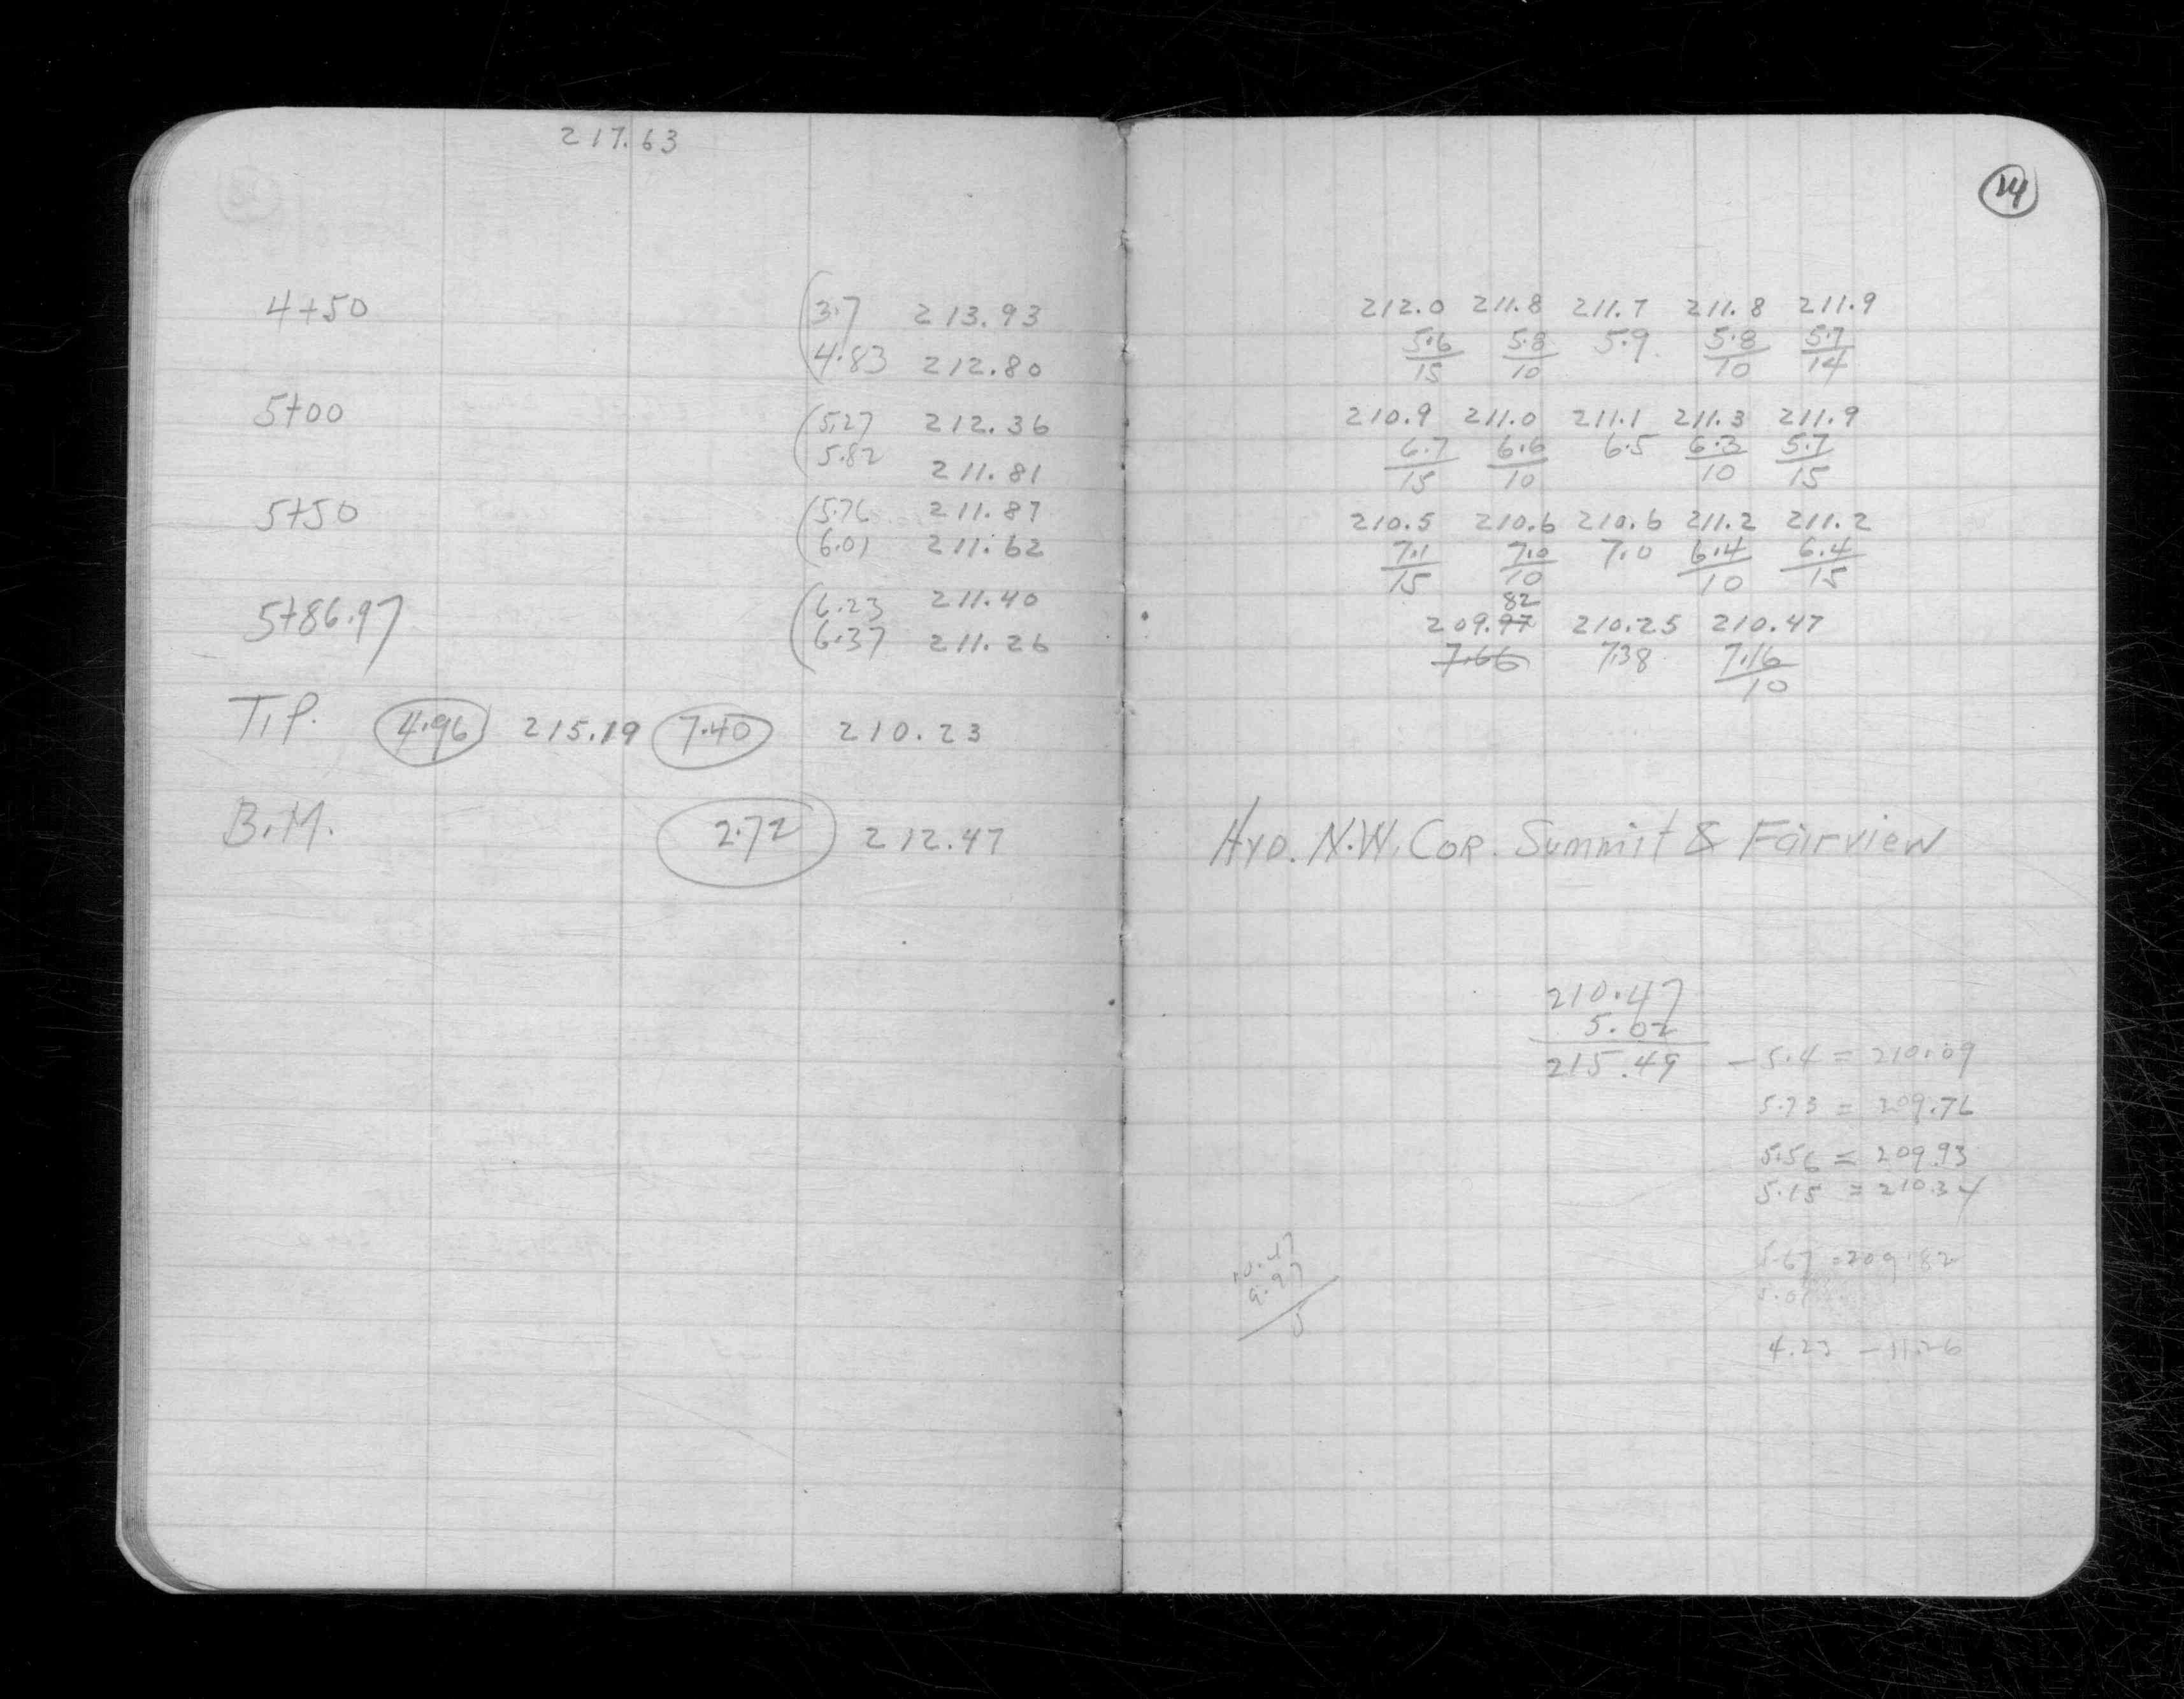 217.63
4+50 (3.7 213.93
4.83 212.80
5+00 (5.27 212.36
5.82 211.81
5+50 (5.76 211.87
6.01 211.62
5+86.97 (6.23 211.40
6.37 211.26
T.P. 4.96 215.19 7.40 210.23
B.M. 2.72 212.47
14
212.0 211.8 211.7 211.8 211.9
5.6 5.8 5.9 5.8 5.7
15 10 10 14
210.9 211.0 211.1 211.3 211.9
6.7 6.6 6.5 6.3 5.7
15 10 10 15
210.5 210.6 210.6 211.2 211.2
7.1 7.0 7.0 6.4 6.4
15 10 10 15
82
209.97 210.25 210.47
7.66 7.38 7.16
10
Hyd. N.W. Cor. Summit & Fairview
210.47
5.02
215.49 - 5.4 = 210.09
5.73 = 209.76
5.56 = 209.93
5.15 = 210.34
5.67 = 209.82
10.47
9.97
5
4.23 - 11.26